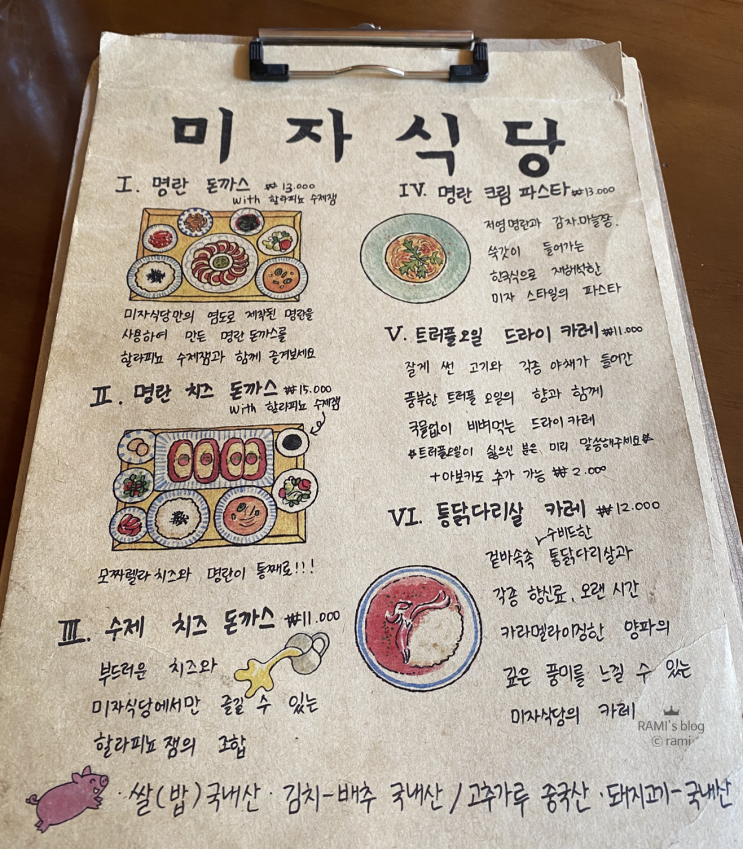 미자식당
I. 명란 돈까스 ₩13.000
with 할라피뇨 수제잼
미자식당만의 염도로 제작된 명란을
사용하여 만든 명란돈까스를
할라피뇨 수제잼과 함께 즐겨보세요
II. 명란 치즈 돈까스 ₩15.000
with 할라피뇨 수제잼
모짜렐라 치즈와 명란이 통째로!!!
III. 수제 치즈 돈까스 ₩11.000
부드러운 치즈와
미자식당에서만 즐길 수 있는
할라피뇨 잼의 조합
IV. 명란 크림 파스타 ₩13.000
저염명란과 감자.마늘쫑.
쑥갓이 들어가는
한국식으로 재해석한
미자 스타일의 파스타
V. 트러플오일 드라이 카레 ₩11.000
잘게 썬 고기와 각종 야채가 들어간
풍부한 트러플 오일의 향과 함께
국물없이 비벼먹는 드라이 카레
*트러플오일이 싫으신 분은 미리 말씀해주세요*
+아보카도 추가 가능 ₩2.000
VI. 통닭다리살 카레 ₩12.000
수비드한
겉바속촉 통닭다리살과
각종 향신료, 오랜 시간
카라멜라이징한 양파의
깊은 풍미를 느낄 수 있는
미자식당의 카레
RAMI's blog
© rami
·쌀(밥)국내산·김치-배추 국내산/고추가루 중국산·돼지고기-국내산